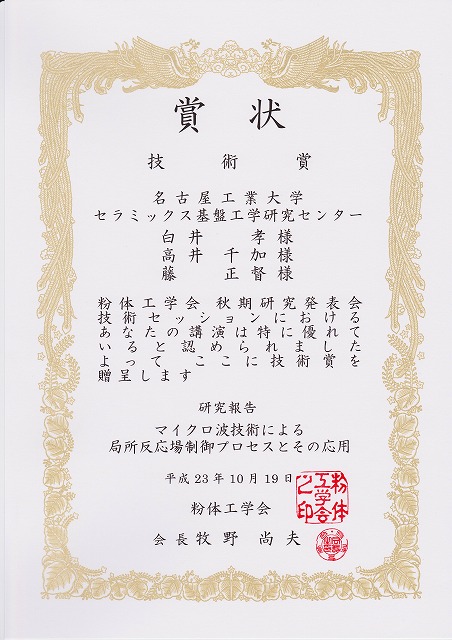 賞状
技術賞
名古屋工業大学
セラミックス基盤工学研究センター
白井 孝様
高井 千加様
藤 正督様
粉体工学会 秋期研究発表会
技術セッションにおける
あなたの講演は特に優れて
いると認められました
よって ここに技術賞を
贈呈します
研究報告
マイクロ波技術による
局所反応場制御プロセスとその応用
平成23年10月19日
粉体工学会
会長 牧野 尚夫
粉体
工学会
之印